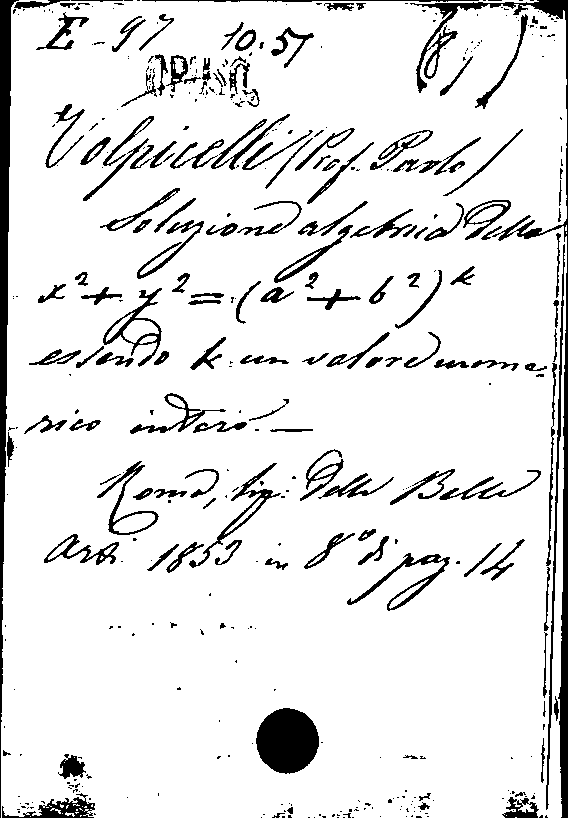 E-97 10.51 (89)
OPUSC.
Volpicelli (Prof. Paolo)
Soluzione algebrica della
x² + y² = (a² + b²)ᵏ
essendo k un valore nume-
rico intero. —
Roma, tip. delle Belle
Arti 1853 in 8° di pag. 14